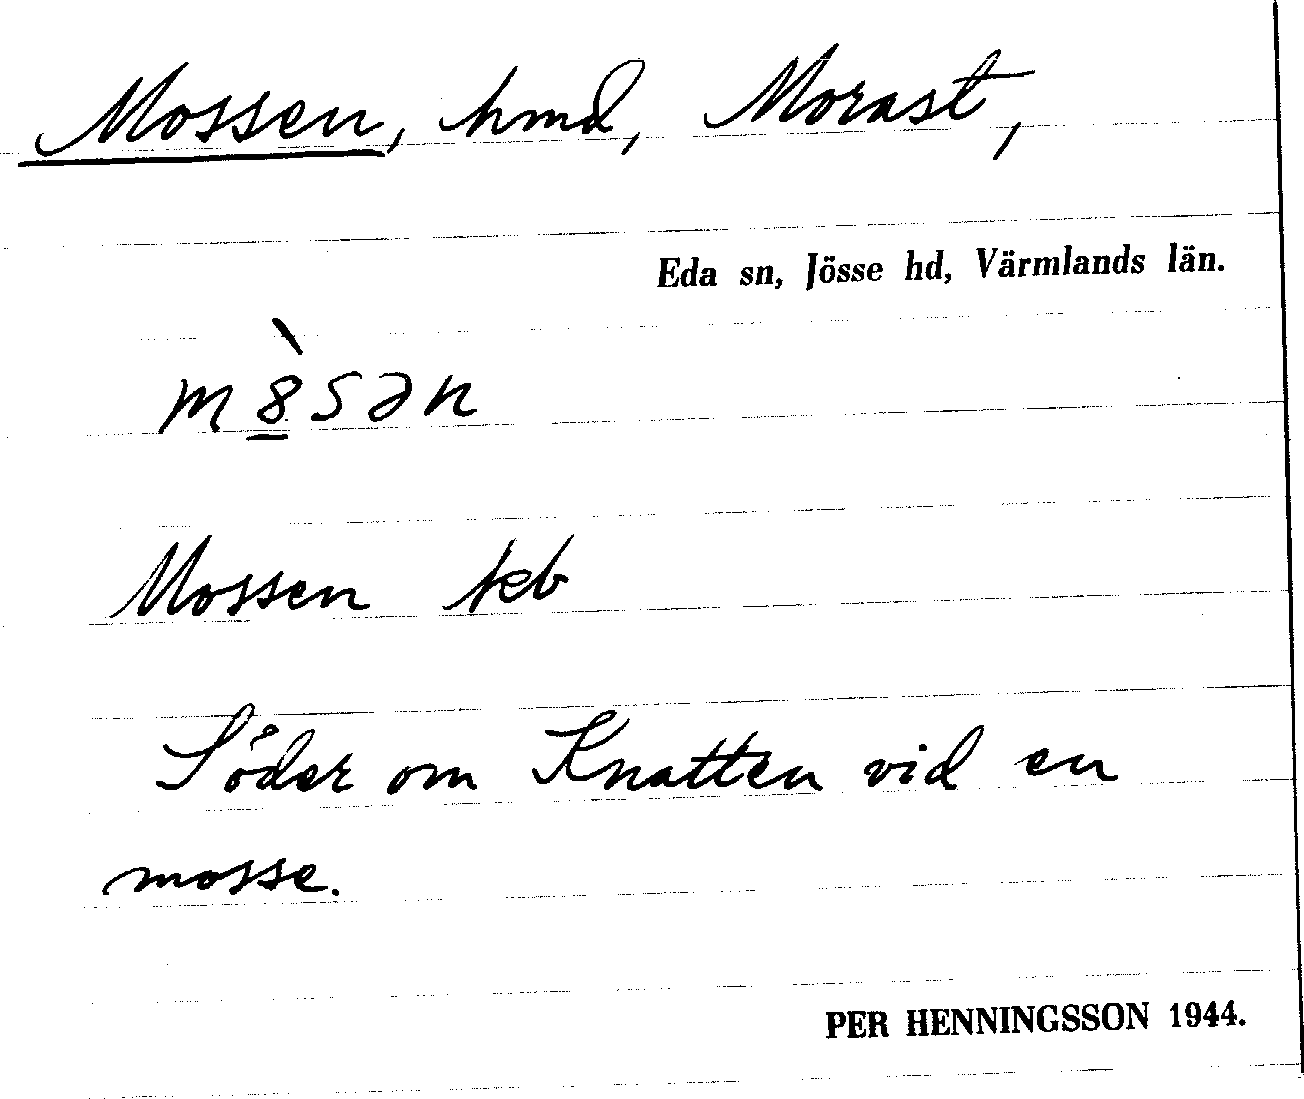 Mossen, hmd, Morast,
Eda sn, Jösse hd, Värmlands län.
m8̱̀sən
Mossen kb
Söder om Knatten vid en
mosse.
PER HENNINGSSON 1944.